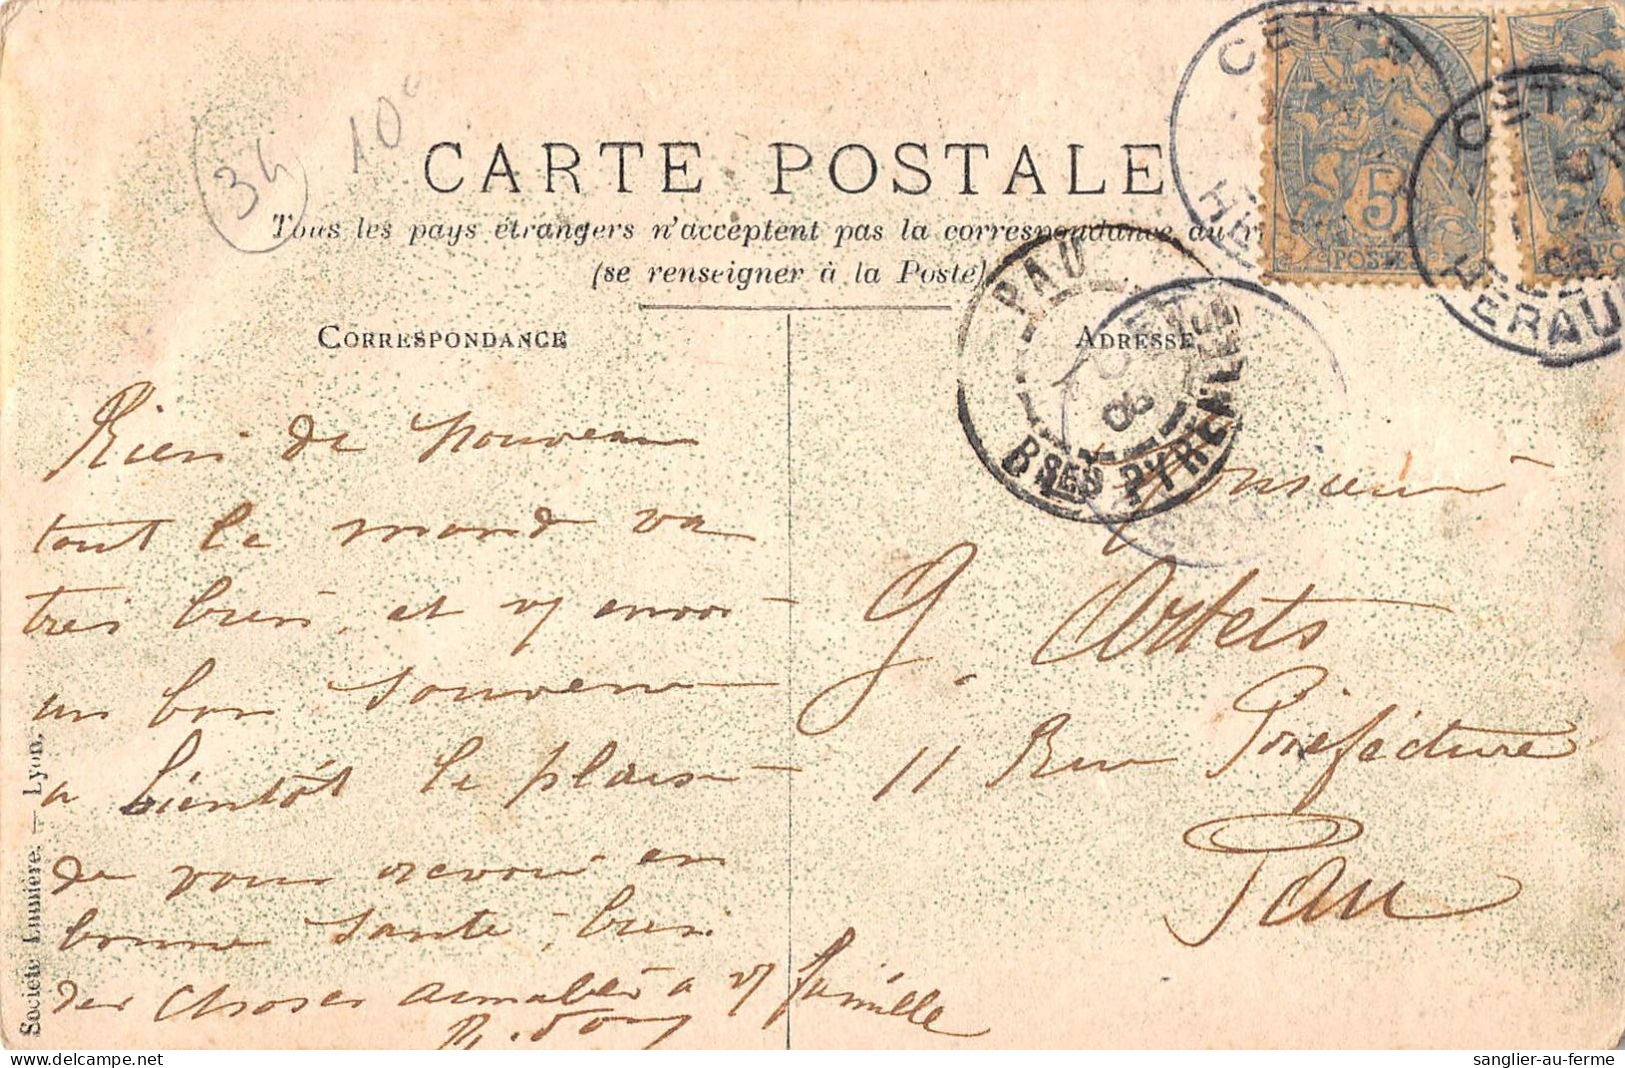 34
10
CARTE POSTALE
Tous les pays étrangers n'acceptent pas la correspondance au
(se renseigner à la Poste)
CORRESPONDANCE
ADRESSE
CETTE
HE
5
POSTES
CETTE
08
HERAU
PAU
08
BSES PYRENEES
Rien de nouveau
tout le monde va
très bien, et v/ envoi
un bon souvenir
a bientôt le plaisir
de vous revoir en
bonne santé, bien
des choses aimables à v/ famille
Monsieur
G. Arbets
11 Rue Préfecture
Pau
Société Lumière. — Lyon.
sanglier-au-ferme